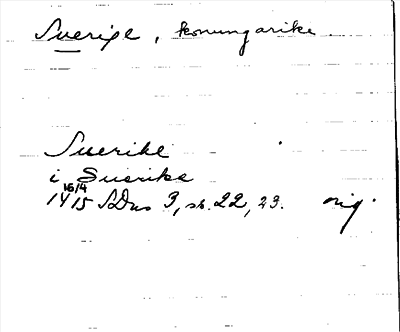 Sverige, konungarike
Suerike
i Suerike
16/4
1415 SDns 3, sh. 22, 23. orig.